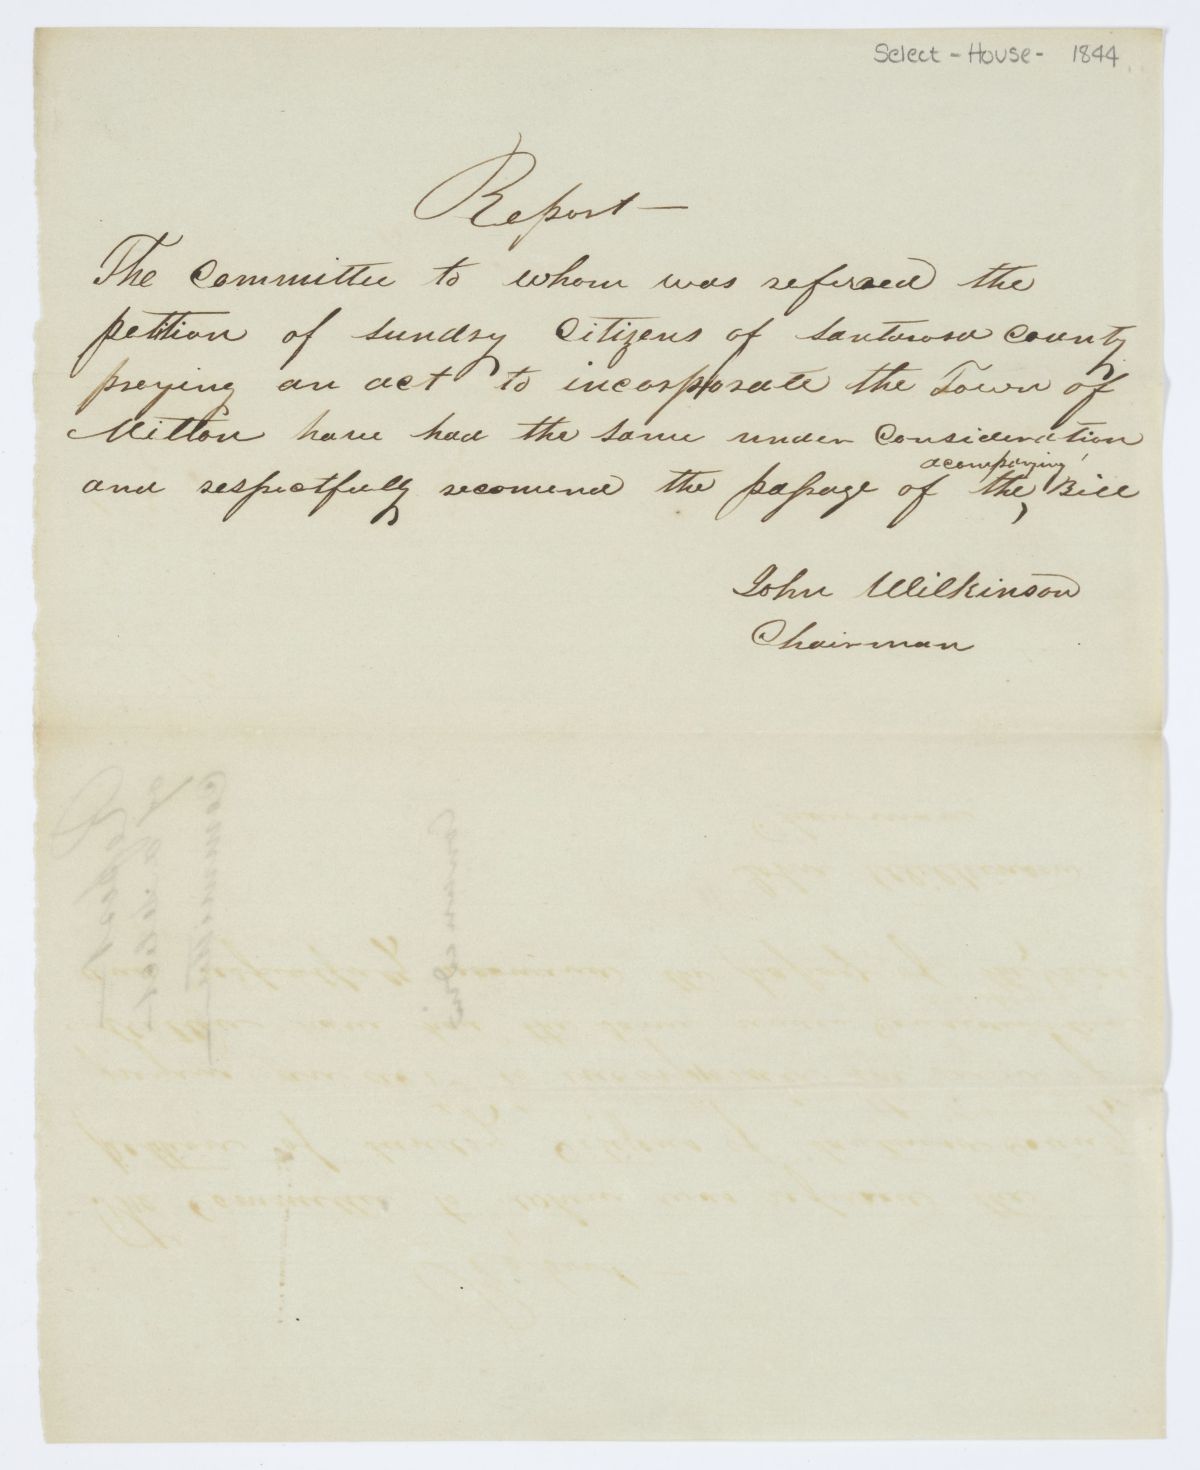 Select - House - 1844
Report —
The Committee to whom was referred the
petition of sundry Citizens of Santarosa County
preying an act to incorporate the Town of
Milton have had the same under Consideration
acompanying
and respectfully recomend the passage of the Bill
John Wilkinson
Chairman